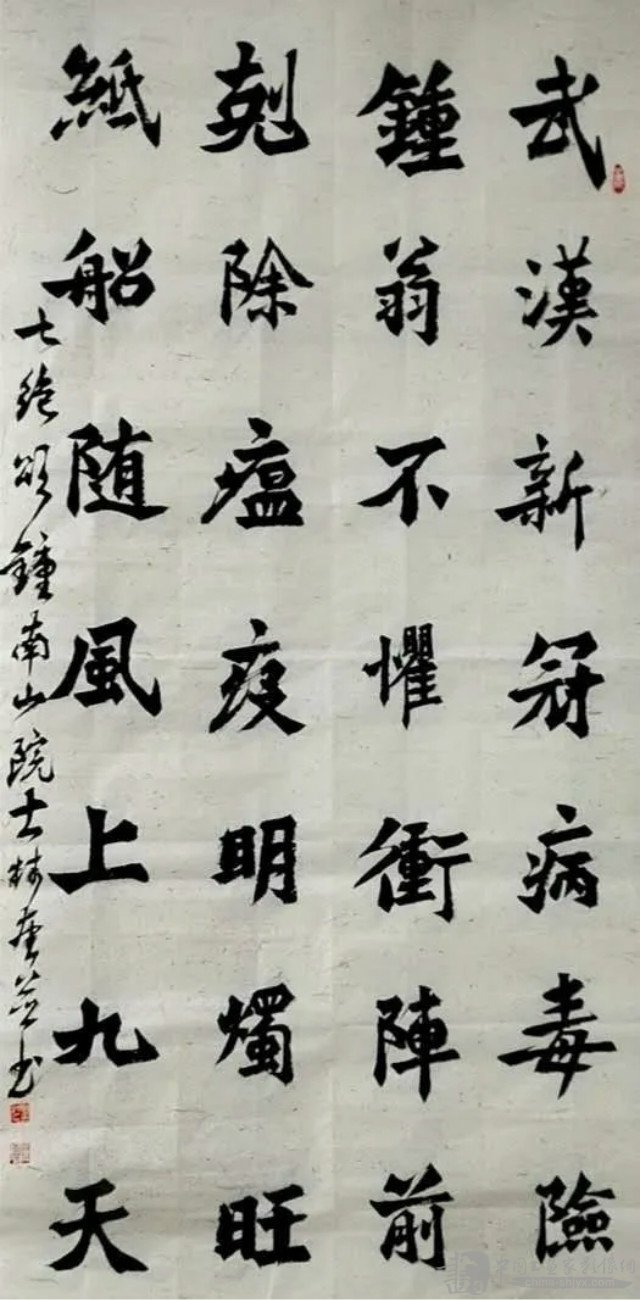 武漢新冠病毒險
鍾翁不懼衝陣前
剋除瘟疫明燭旺
紙船随風上九天
七絶頌鍾南山院士林
书
中国书画家影像网
china-shjyx.com